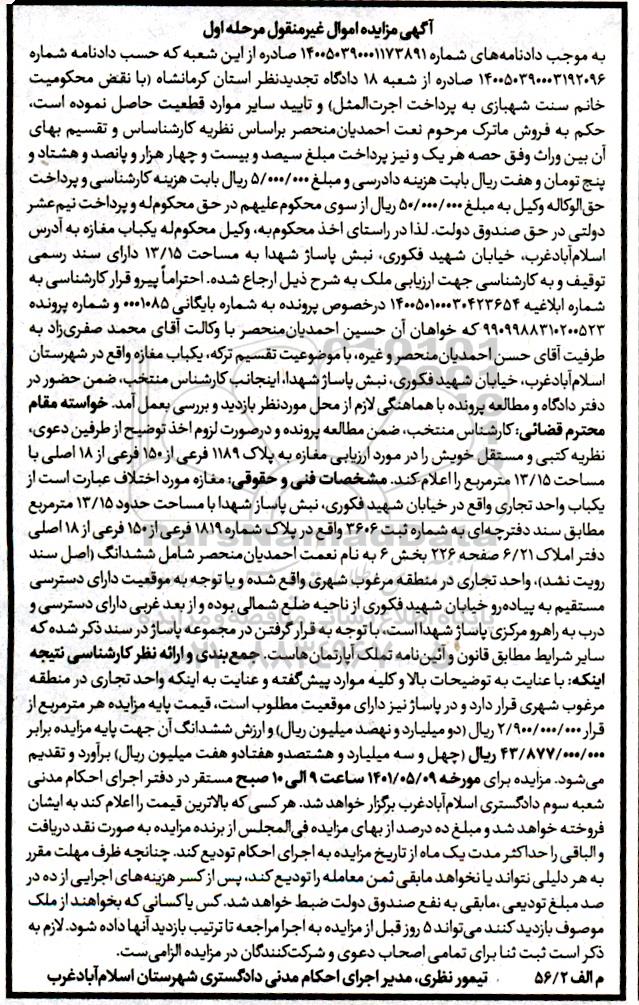 آگهی مزایده اموال غیرمنقول مرحله اول
به موجب دادنامه‌های شماره ۱۴۰۰۵۰۳۹۰۰۰۱۱۷۳۸۹۱ صادره از این شعبه که حسب دادنامه شماره
۱۴۰۰۵۰۳۹۰۰۰۳۱۹۲۰۹۶ صادره از شعبه ۱۸ دادگاه تجدیدنظر استان کرمانشاه (با نقض محکومیت
خانم سنت شهبازی به پرداخت اجرت‌المثل) و تایید سایر موارد قطعیت حاصل نموده است،
حکم به فروش ماترک مرحوم نعت احمدیان‌منحصر براساس نظریه کارشناساس و تقسیم بهای
آن بین وراث وفق حصه هر یک و نیز پرداخت مبلغ سیصد و بیست و چهار هزار و پانصد و هشتاد و
پنج تومان و هفت ریال بابت هزینه دادرسی و مبلغ ۵/۰۰۰/۰۰۰ ریال بابت هزینه کارشناسی و پرداخت
حق‌الوکاله وکیل به مبلغ ۵۰/۰۰۰/۰۰۰ ریال از سوی محکوم‌علیهم در حق محکوم‌له و پرداخت نیم‌عشر
دولتی در حق صندوق دولت. لذا در راستای اخذ محکوم‌به، وکیل محکوم‌له یکباب مغازه به آدرس
اسلام‌آبادغرب، خیابان شهید فکوری، نبش پاساژ شهدا به مساحت ۱۳/۱۵ دارای سند رسمی
توقیف و به کارشناسی جهت ارزیابی ملک به شرح ذیل ارجاع شده. احتراماً پیرو قرار کارشناسی به
شماره ابلاغیه ۱۴۰۰۵۰۱۰۰۰۳۰۴۲۳۶۵۴ درخصوص پرونده به شماره بایگانی ۰۰۰۱۰۸۵ و شماره پرونده
۹۹۰۹۹۸۸۳۱۰۲۰۰۵۲۳ که خواهان آن حسین احمدیان‌منحصر با وکالت آقای محمد صفری‌زاد به
طرفیت آقای حسن احمدیان‌منحصر و غیره، با موضوعیت تقسیم ترکه، یکباب مغازه واقع در شهرستان
اسلام‌آبادغرب، خیابان شهید فکوری، نبش پاساژ شهدا، اینجانب کارشناس منتخب، ضمن حضور در
دفتر دادگاه و مطالعه پرونده با هماهنگی لازم از محل موردنظر بازدید و بررسی بعمل آمد. خواسته مقام
محترم قضائی: کارشناس منتخب، ضمن مطالعه پرونده و درصورت لزوم اخذ توضیح از طرفین دعوی،
نظریه کتبی و مستقل خویش را در مورد ارزیابی مغازه به پلاک ۱۱۸۹ فرعی از ۱۵۰ فرعی از ۱۸ اصلی با
مساحت ۱۳/۱۵ مترمربع را اعلام کند. مشخصات فنی و حقوقی: مغازه مورد اختلاف عبارت است از
یکباب واحد تجاری واقع در خیابان شهید فکوری، نبش پاساژ شهدا با مساحت حدود ۱۳/۱۵ مترمربع
مطابق سند دفترچه‌ای به شماره ثبت ۳۶۰۶ واقع در پلاک شماره ۱۸۱۹ فرعی از ۱۵۰ فرعی از ۱۸ اصلی
دفتر املاک ۶/۲۱ صفحه ۲۲۶ بخش ۶ به نام نعمت احمدیان‌منحصر شامل ششدانگ (اصل سند
رویت نشد)، واحد تجاری در منطقه مرغوب شهری واقع شده و با توجه به موقعیت دارای دسترسی
مستقیم به پیاده‌رو خیابان شهید فکوری از ناحیه ضلع شمالی بوده و از بعد غربی دارای دسترسی و
درب به راهرو مرکزی پاساژ شهدا است، با توجه به قرار گرفتن در مجموعه پاساژ در سند ذکر شده که
سایر شرایط مطابق قانون و آئین‌نامه تملک آپارتمان‌هاست. جمع‌بندی و ارائه نظر کارشناسی نتیجه
اینکه: با عنایت به توضیحات بالا و کلیه موارد پیش‌گفته و عنایت به اینکه واحد تجاری در منطقه
مرغوب شهری قرار دارد و در پاساژ نیز دارای موقعیت مطلوب است، قیمت پایه مزایده هر مترمربع از
قرار ۲/۹۰۰/۰۰۰/۰۰۰ ریال (دو میلیارد و نهصد میلیون ریال) و ارزش ششدانگ آن جهت پایه مزایده برابر
۴۳/۸۷۷/۰۰۰/۰۰۰ ریال (چهل و سه میلیارد و هشتصدو هفتادو هفت میلیون ریال) برآورد و تقدیم
می‌شود. مزایده برای مورخه ۱۴۰۱/۰۵/۰۹ ساعت ۹ الی ۱۰ صبح مستقر در دفتر اجرای احکام مدنی
شعبه سوم دادگستری اسلام‌آبادغرب برگزار خواهد شد. هر کسی که بالاترین قیمت را اعلام کند به ایشان
فروخته خواهد شد و مبلغ ده درصد از بهای مزایده فی‌المجلس از برنده مزایده به صورت نقد دریافت
و الباقی را حداکثر مدت یک ماه از تاریخ مزایده به اجرای احکام تودیع کند. چنانچه ظرف مهلت مقرر
به هر دلیلی نتواند یا نخواهد مابقی ثمن معامله را تودیع کند، پس از کسر هزینه‌های اجرایی از ده در
صد مبلغ تودیعی ،مابقی به نفع صندوق دولت ضبط خواهد شد. کس یا کسانی که بخواهند از ملک
موصوف بازدید کنند می‌تواند ۵ روز قبل از مزایده به اجرا مراجعه تا ترتیب بازدید آنها داده شود. لازم به
ذکر است ثبت ثنا برای تمامی اصحاب دعوی و شرکت‌کنندگان در مزایده الزامی‌ست.
م الف ۵۶/۲ تیمور نظری، مدیر اجرای احکام مدنی دادگستری شهرستان اسلام‌آبادغرب